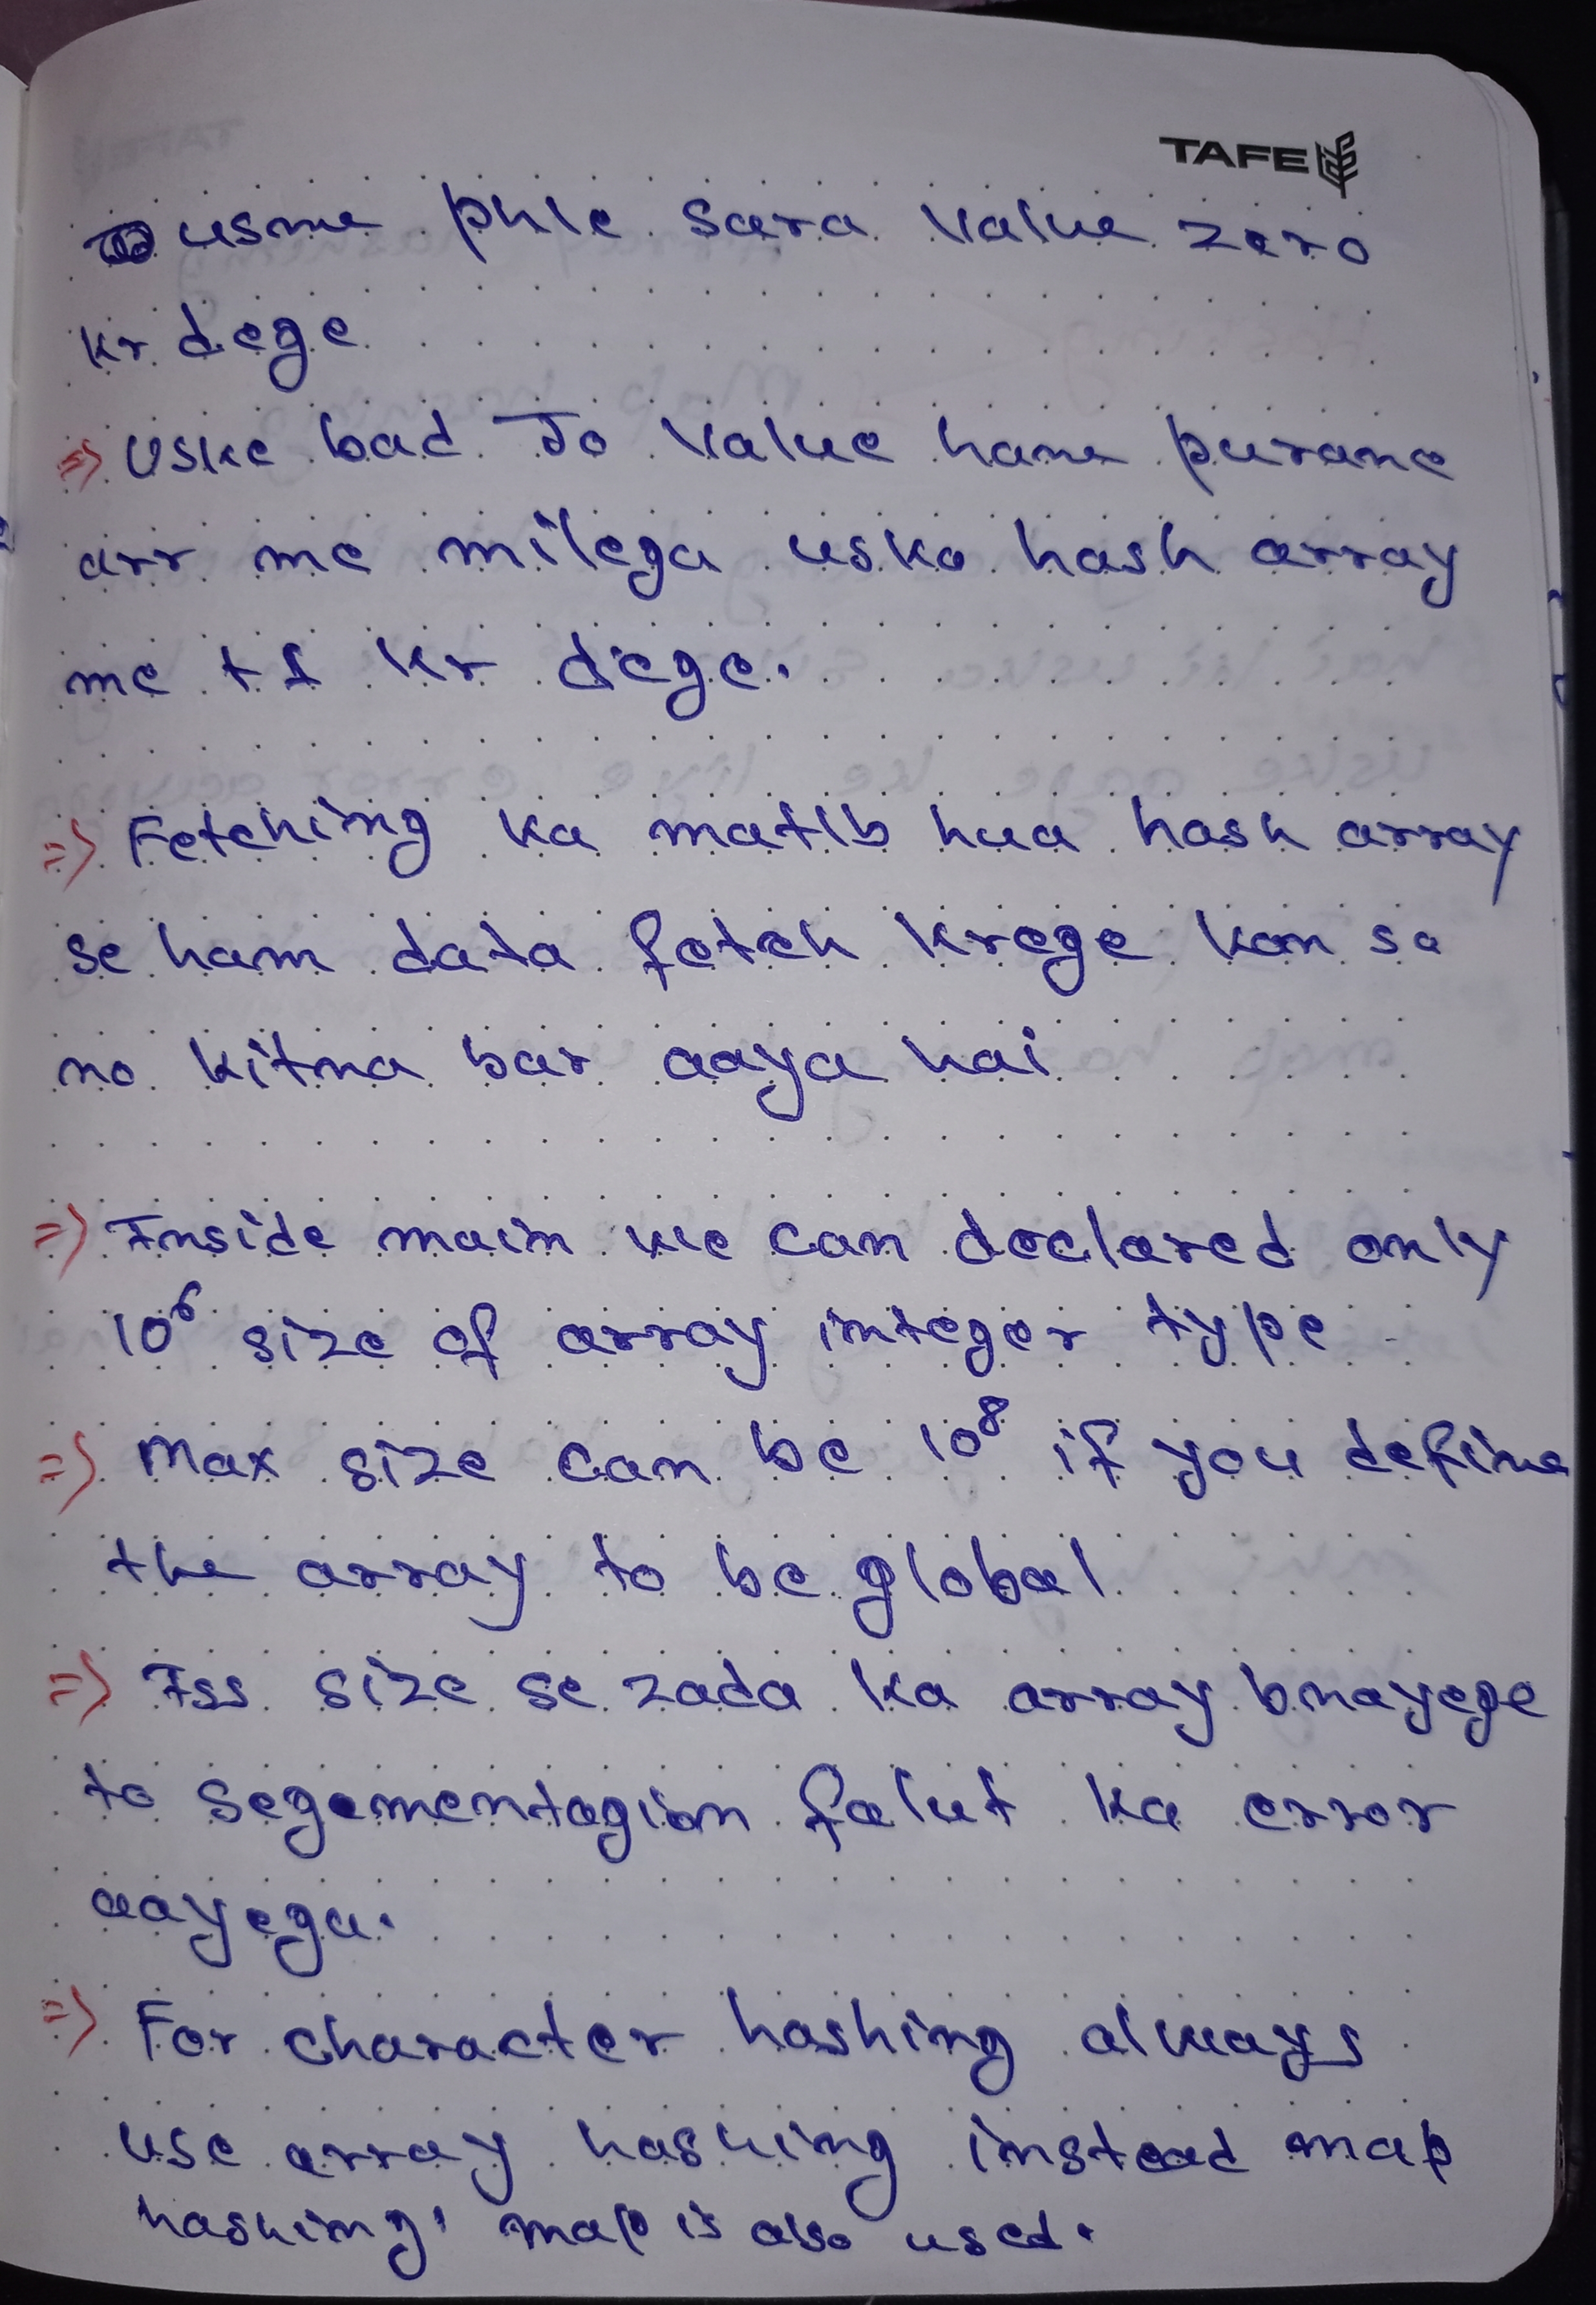 TAFE
usme phle sara value zero
kr dege
=> Uske bad Jo value hame purane
arr me milega usko hash array
me +1 kr dege.
=> Fetching ka matlb hua hash array
se ham data fetch krege kon sa
no kitna bar aaya hai
=> Inside main we can declared only
10⁶ size of array integer type
=> Max size can be 10⁸ if you define
the array to be global
=> Iss size se zada ka array bnayege
to segementagion falut ka error
aayega.
=> For character hashing always
use array hashing instead map
hashing, map is also used.